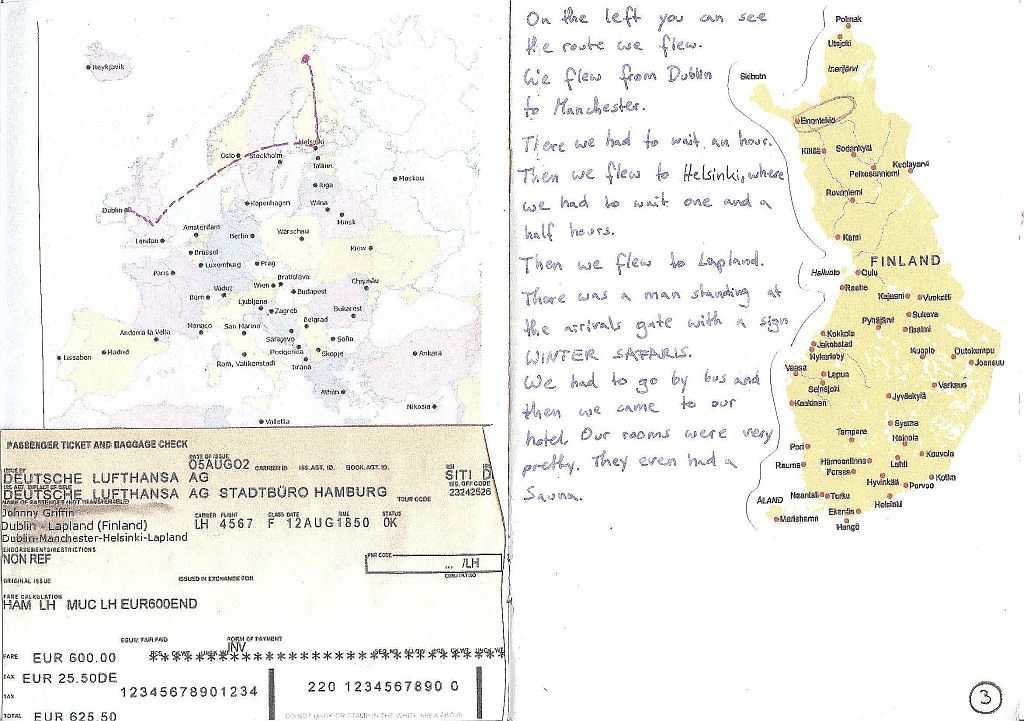 Reykjavik
Oslo
Stockholm
Helsinki
Talinn
Riga
Moskau
Dublin
Kopenhagen
Wilna
Minsk
London
Amsterdam
Berlin
Warschau
Kiew
Brüssel
Luxemburg
Prag
Paris
Bratislava
Wien
Budapest
Chişinău
Bern
Vaduz
Ljubljana
Zagreb
Belgrad
Bukarest
Andorra la Vella
Monaco
San Marino
Sarajevo
Sofia
Lissabon
Madrid
Rom, Vatikanstadt
Podgorica
Skopje
Tirana
Ankara
Athen
Nikosia
Valletta
PASSENGER TICKET AND BAGGAGE CHECK
DATE OF ISSUE
05AUG02
CARRIER ID ISS.AGT. ID BOOK.AGT. ID.
ISSUED BY
DEUTSCHE LUFTHANSA AG
SITI D
ISS. OFF CODE
DEUTSCHE LUFTHANSA AG STADTBÜRO HAMBURG
23242526
NAME OF PASSENGER (NOT TRANSFERABLE)
TOUR CODE
Johnny Griffin
Dublin - Lapland (Finland)
CARRIER FLIGHT CLASS DATE TIME STATUS
LH 4567 F 12AUG1850 OK
Dublin-Manchester-Helsinki-Lapland
ENDORSEMENTS/RESTRICTIONS
NON REF
PNR CODE
... /LH
ORIGINAL ISSUE
ISSUED IN EXCHANGE FOR
FARE CALCULATION
HAM LH MUC LH EUR600END
EQUIV. FAIR PAID
FORM OF PAYMENT
INV
FARE EUR 600.00
TAX EUR 25.50DE
TAX
12345678901234
220 1234567890 0
TOTAL EUR 625.50
DO NOT MARK OR STAMP IN THE WHITE AREA ABOVE
On the left you can see
the route we flew.
We flew from Dublin
to Manchester.
There we had to wait an hour.
Then we flew to Helsinki, where
we had to wait one and a
half hours.
Then we flew to Lapland.
There was a man standing at
the arrivals gate with a sign
WINTER SAFARIS.
We had to go by bus and
then we came to our
hotel. Our rooms were very
pretty. They even had a
Sauna.
Polmak
Utsjoki
Inarijärvi
Skibotn
Enontekiö
Kittilä
Sodankylä
Kuolayarvi
Pelkosenniemi
Rovaniemi
Kemi
FINLAND
Hailuoto
Oulu
Raahe
Kajaani
Virokatti
Pyhäjärvi
Sukeva
Iisalmi
Kokkola
Jakobstad
Nykarleby
Kuopio
Outokumpu
Joensuu
Vaasa
Lapua
Seinäjoki
Varkaus
Kaskinen
Jyväskylä
Sysma
Tampere
Heinola
Pori
Kouvola
Rauma
Hämeenlinna
Lahti
Forssa
Hyvinkää
Kotka
Porvoo
ÅLAND
Naantali
Turku
Helsinki
Mariehamn
Ekenäs
Hangö
3